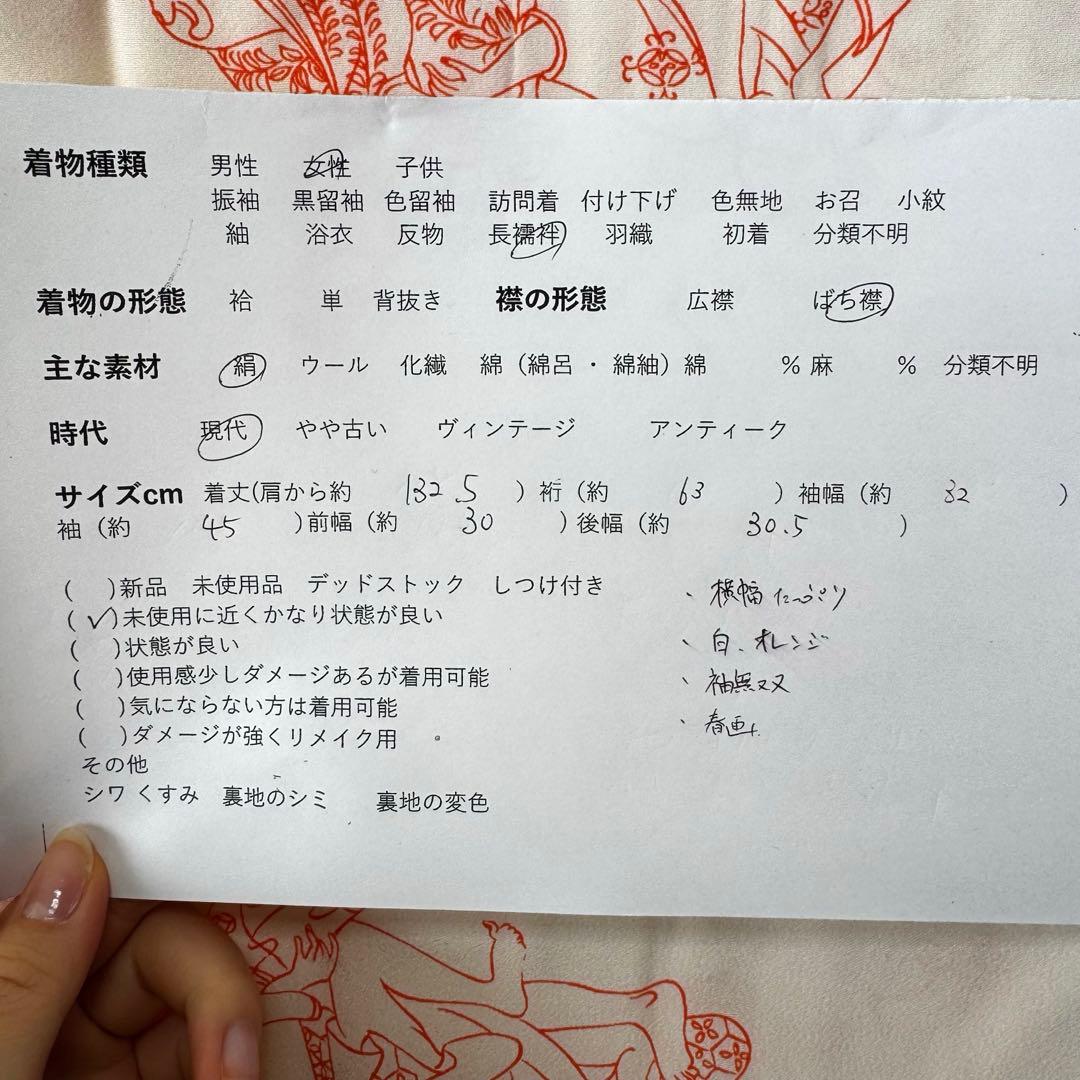 着物種類 男性 女性 子供
振袖 黒留袖 色留袖 訪問着 付け下げ 色無地 お召 小紋
紬 浴衣 反物 長襦袢 羽織 初着 分類不明
着物の形態 袷 単 背抜き 襟の形態 広襟 ばち襟
主な素材 絹 ウール 化繊 綿（綿呂・綿紬）綿 % 麻 % 分類不明
時代 現代 やや古い ヴィンテージ アンティーク
サイズcm 着丈(肩から約 132.5 ) 裄（約 63 ）袖幅（約 32 ）
袖（約 45 )前幅（約 30 )後幅（約 30.5 )
( )新品 未使用品 デッドストック しつけ付き
(✓)未使用に近くかなり状態が良い
( )状態が良い
( )使用感少しダメージあるが着用可能
( )気にならない方は着用可能
( )ダメージが強くリメイク用
その他
シワ くすみ 裏地のシミ 裏地の変色
、横幅たっぷり
、白、オレンジ
、袖無双
、春画